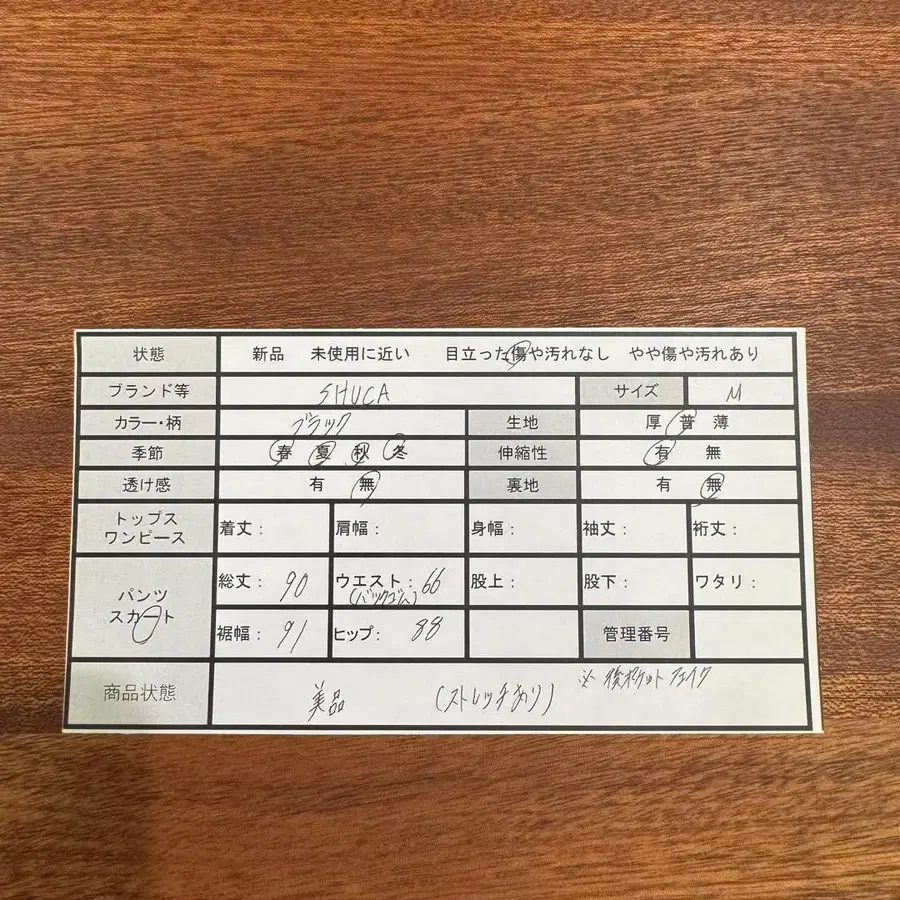 状態 新品 未使用に近い 目立った傷や汚れなし やや傷や汚れあり
ブランド等 SHUCA サイズ M
カラー・柄 ブラック 生地 厚 普 薄
季節 春 夏 秋 冬 伸縮性 有 無
透け感 有 無 裏地 有 無
トップス
ワンピース
着丈: 肩幅: 身幅: 袖丈: 裄丈:
パンツ
スカート
総丈: 90 ウエスト: 66 股上: 股下: ワタリ:
(バックゴム)
裾幅: 91 ヒップ: 88 管理番号
商品状態 美品 (ストレッチあり) ※後ポケットフェイク